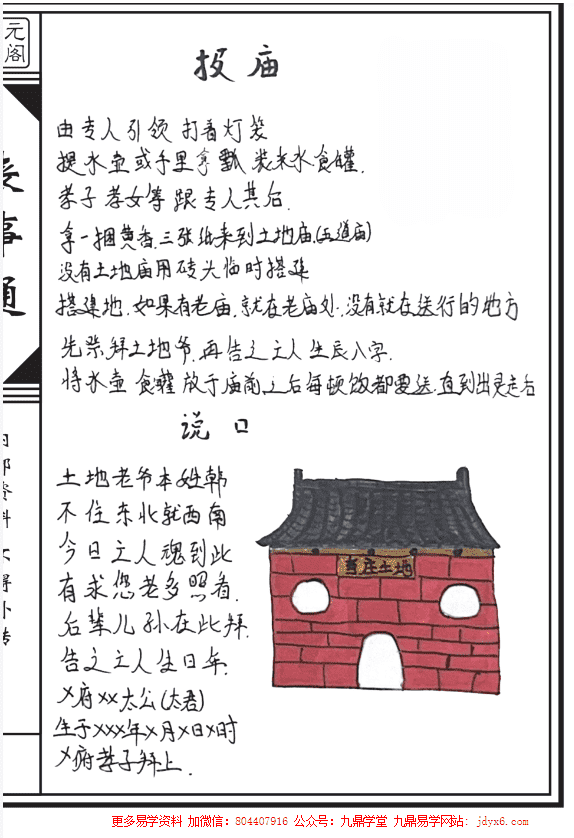 元阁
丧事通
内部资料 不得外传
投庙
由专人引领 打着灯笼
提水壶或手里拿瓢 装米水食罐.
孝子孝女等 跟专人其后.
拿一捆黄香.三张纸来到土地庙(五道庙)
没有土地庙用砖头临时搭建
搭建地.如果有老庙.就在老庙处.没有就在送行的地方
先祭拜土地爷.再告之主人生辰八字.
将水壶 食罐 放于庙前.之后每顿饭都要送.直到出灵走后
说口
土地老爷本姓韩
不住东北就西南
今日主人魂到此
有求您老多照看.
后辈儿孙在此拜.
告之主人生日年.
X府XX太公(太君)
生于XXX年X月X日X时
X府孝子拜上.
当庄土地
更多易学资料 加微信：804407916 公众号：九鼎学堂 九鼎易学网站：jdyx6.com